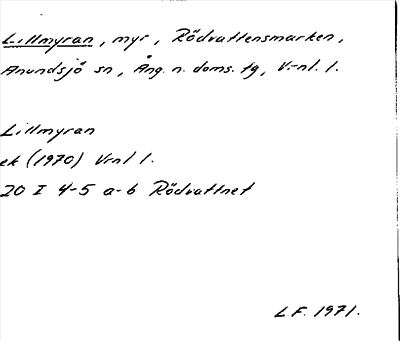 Lillmyran, myr, Rödvattensmarken,
Anundsjö sn, Ång. n. doms. tg, V:nl. l.
Lillmyran
ek (1970) Vrnl l.
20 I 4-5 a-b Rödvattnet
L.F. 1971.